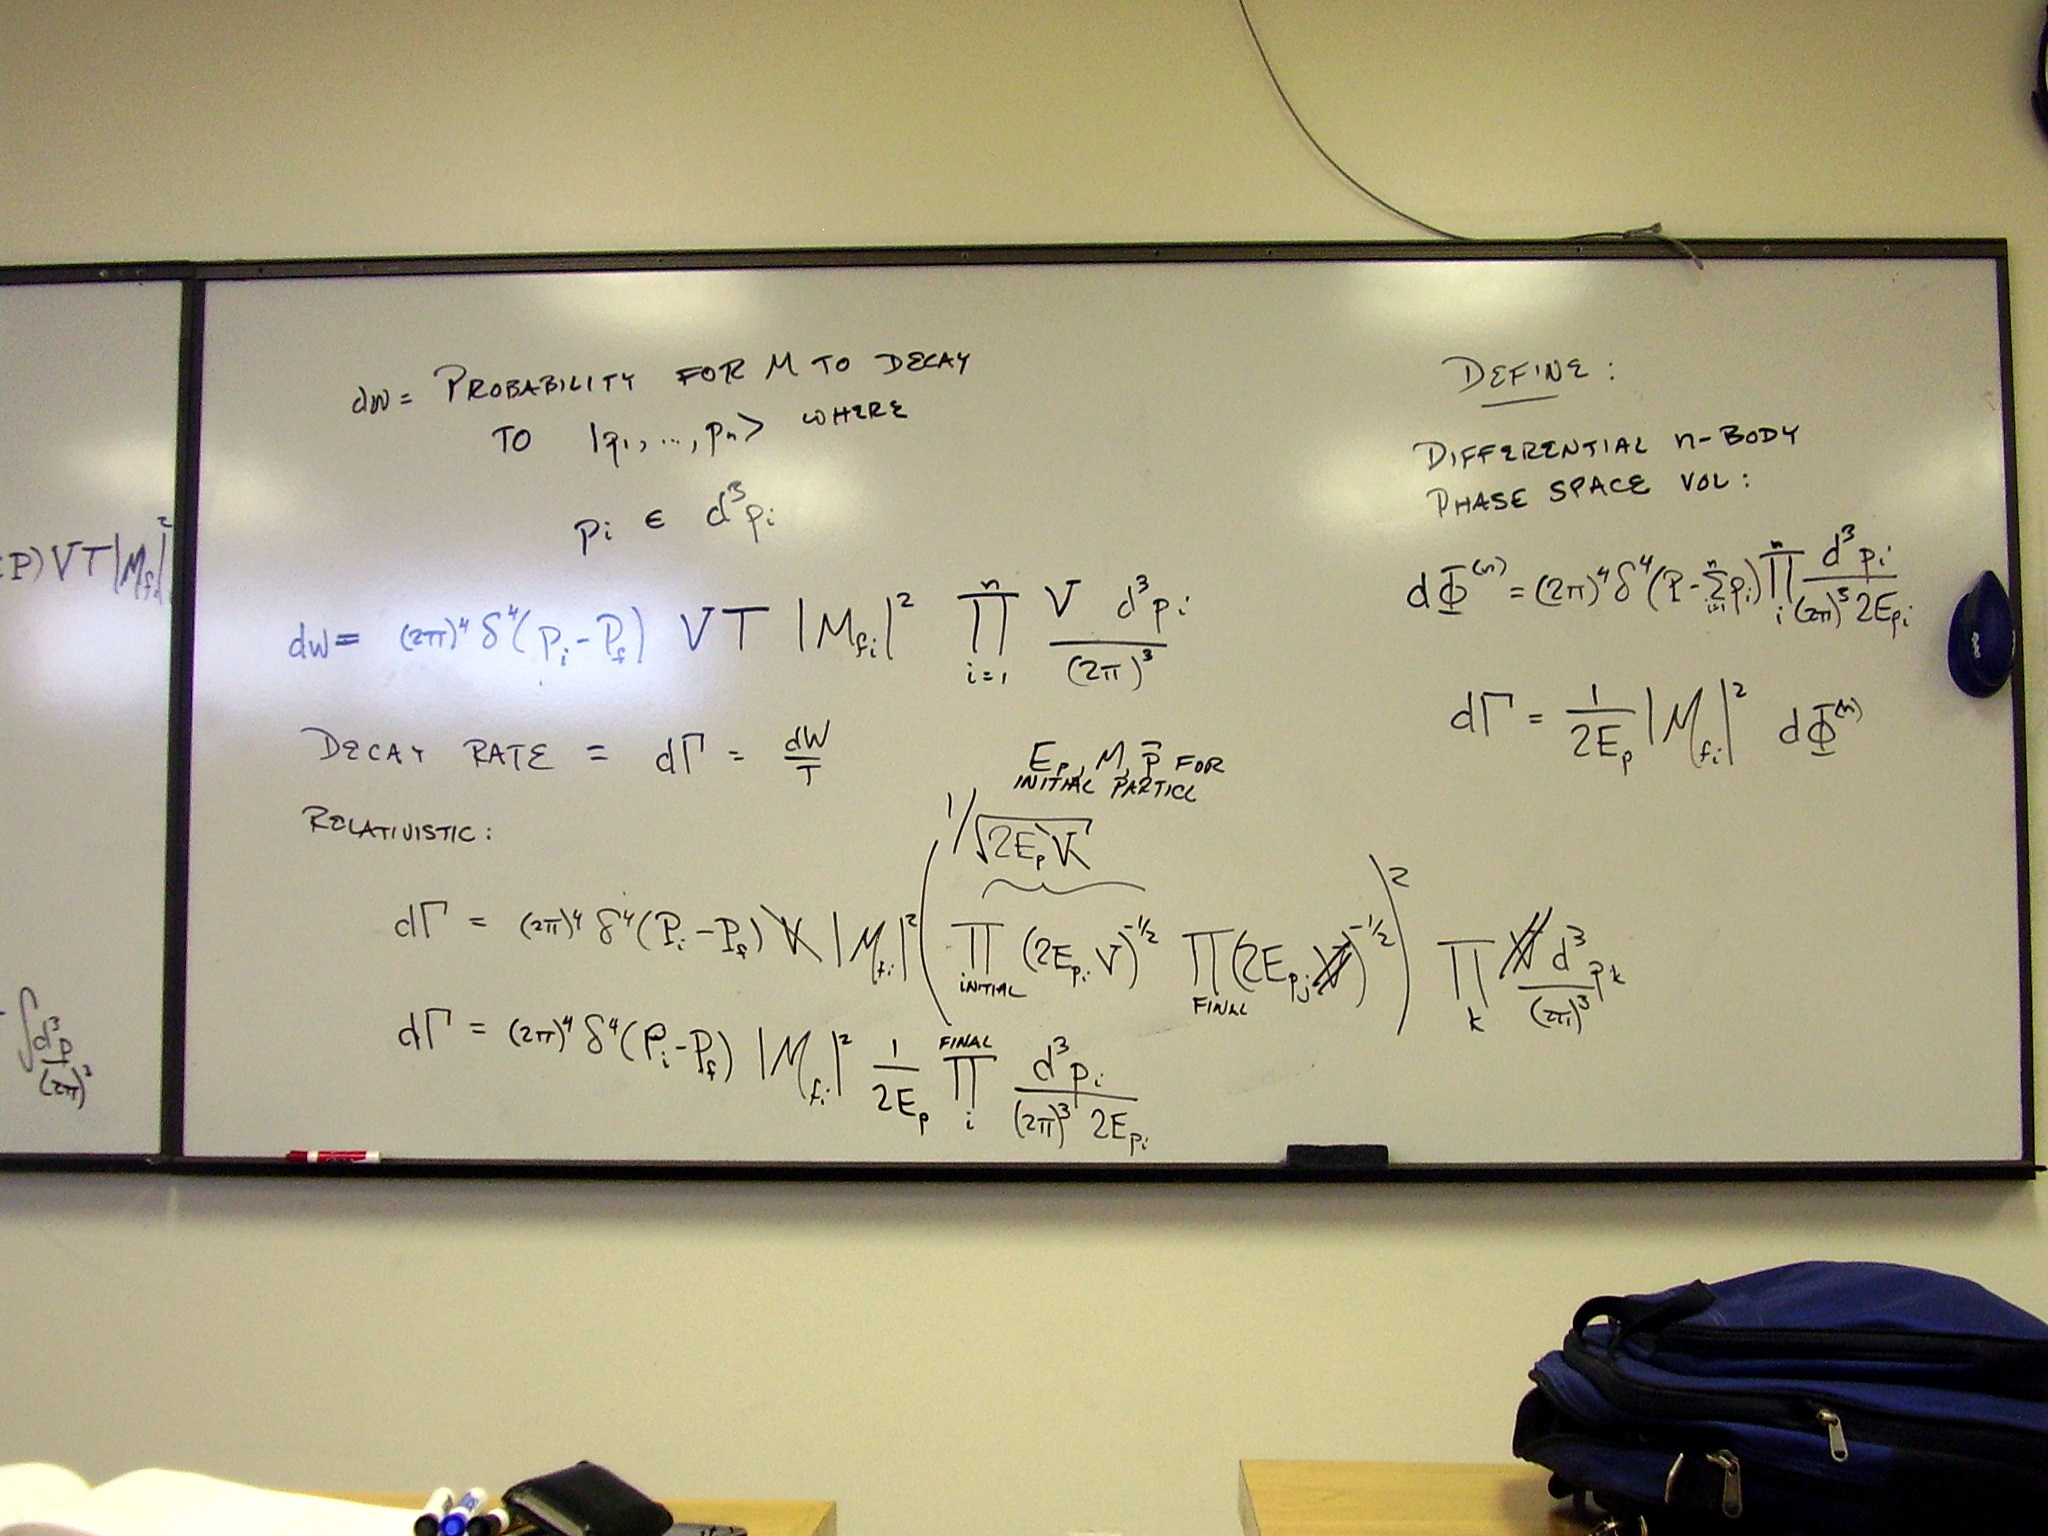 P) VT|M_fi|²
∫ d³p/(2π)³
dW = PROBABILITY FOR M TO DECAY
TO |p₁, ..., pₙ> WHERE
pᵢ ∈ d³pᵢ
dW = (2π)⁴ δ⁴(Pᵢ - P_f) VT |M_fi|² ∏_{i=1}^{n} V d³pᵢ/(2π)³
DECAY RATE = dΓ = dW/T
E_p, M, p̄ FOR
INITIAL PARTICL
RELATIVISTIC:
1/√(2E_p V)
dΓ = (2π)⁴ δ⁴(Pᵢ - P_f) V |M_fi|² ( ∏_{INITIAL} (2E_{pᵢ} V)^{-1/2} ∏_{FINAL} (2E_{pⱼ} V)^{-1/2} )² ∏_k V d³p_k/(2π)³
dΓ = (2π)⁴ δ⁴(Pᵢ - P_f) |M_fi|² 1/2E_p ∏_i^{FINAL} d³pᵢ/(2π)³ 2E_{pᵢ}
DEFINE:
DIFFERENTIAL n-BODY
PHASE SPACE VOL:
dΦ⁽ⁿ⁾ = (2π)⁴ δ⁴(P - Σ_{i=1}^{n} pᵢ) ∏_i^n d³pᵢ/(2π)³ 2E_{pᵢ}
dΓ = 1/2E_p |M_fi|² dΦ⁽ⁿ⁾